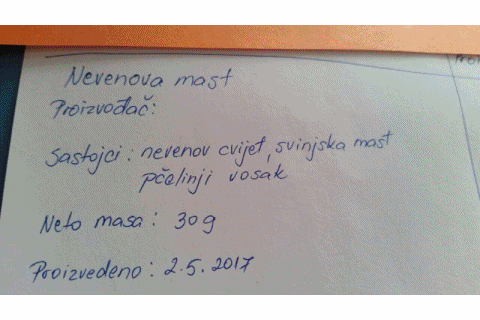 Nevenova mast
Proizvođač:
Sastojci: nevenov cvijet, svinjska mast
pčelinji vosak
Neto masa: 30g
Proizvedeno: 2.5.2017